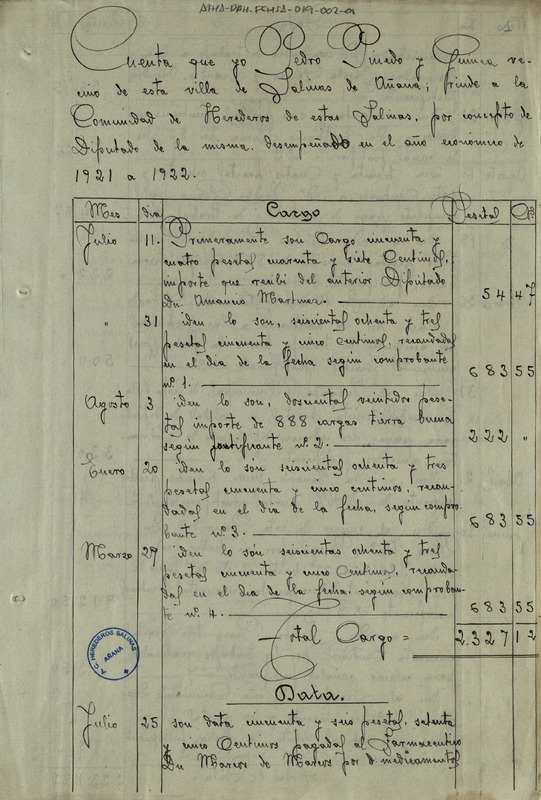 ATHA-DAH-FCHSA-019-002-01
Cuenta que yo Pedro Pinedo y Guinea ve-
cino de esta villa de Salinas de Añana; rinde a la
Comunidad de Herederos de estas Salinas, por concepto de
Diputado de la misma, desempeñado en el año económico de
1921 a 1922.
Mes dia Cargo Pesetas Cts
Julio 11. Primeramente son Cargo cincuenta y
cuatro pesetas cuarenta y siete Centimos,
importe que recibi del anterior Diputado
Dn. Amancio Martinez. 54 47
" 31 iden lo son, seiscientas ochenta y tres
pesetas cincuenta y cinco centimos, recaudadas
en el dia de la fecha según comprobante
nº 1. 683 55
Agosto 3 iden lo son, doscientas veintidos pese-
tas importe de 888 cargas tierra buena
según justificante nº 2. 222 "
Enero 20 iden lo son seiscientas ochenta y tres
pesetas cincuenta y cinco centimos, recau-
dadas en el dia de la fecha, según compro-
bante nº 3. 683 55
Marzo 27 iden lo són seiscientas ochenta y tres
pesetas cincuenta y cinco Centimos, recauda-
das en el dia de la fecha, según comproban-
te nº 4. 683 55
Total Cargo = 2.327 12
T.C. HEREDEROS SALINAS
AÑANA
Data.
Julio 25 son data cincuenta y seis pesetas, setenta
y cinco Centimos pagadas al Farmaceutico
Dn Marcos de Marcos por d. medicamentos